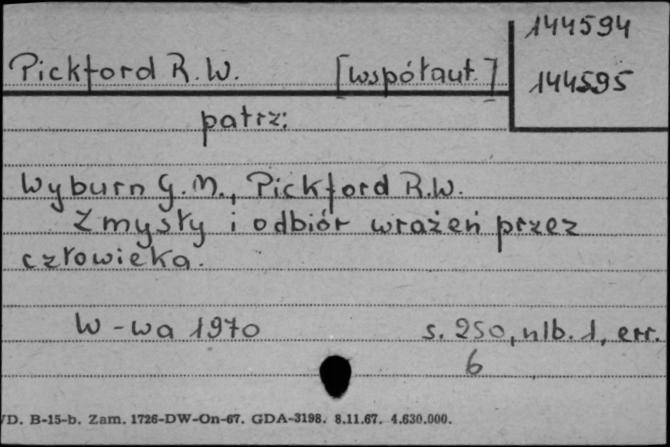 144594
Pickford R.W. [współaut.] 144595
patrz:
Wyburn G.M., Pickford R.W.
Zmysły i odbiór wrażeń przez
człowieka.
W-wa 1970 s. 250, nlb. 1, err.
6
/D. B-15-b. Zam. 1726-DW-On-67. GDA-3198. 8.11.67. 4.630.000.